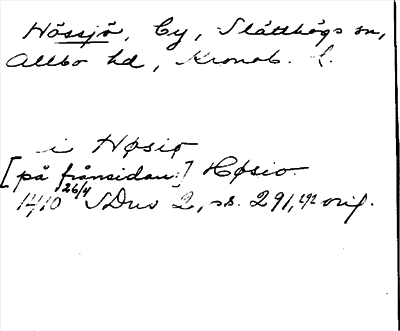 Hössjö, by, Slätthögs sn,
Allbo hd, Kronob. l.
i Høsiø
[på frånsidan:] Høsio
1410 26/4 SDns 2, s. 291, 292 orig.